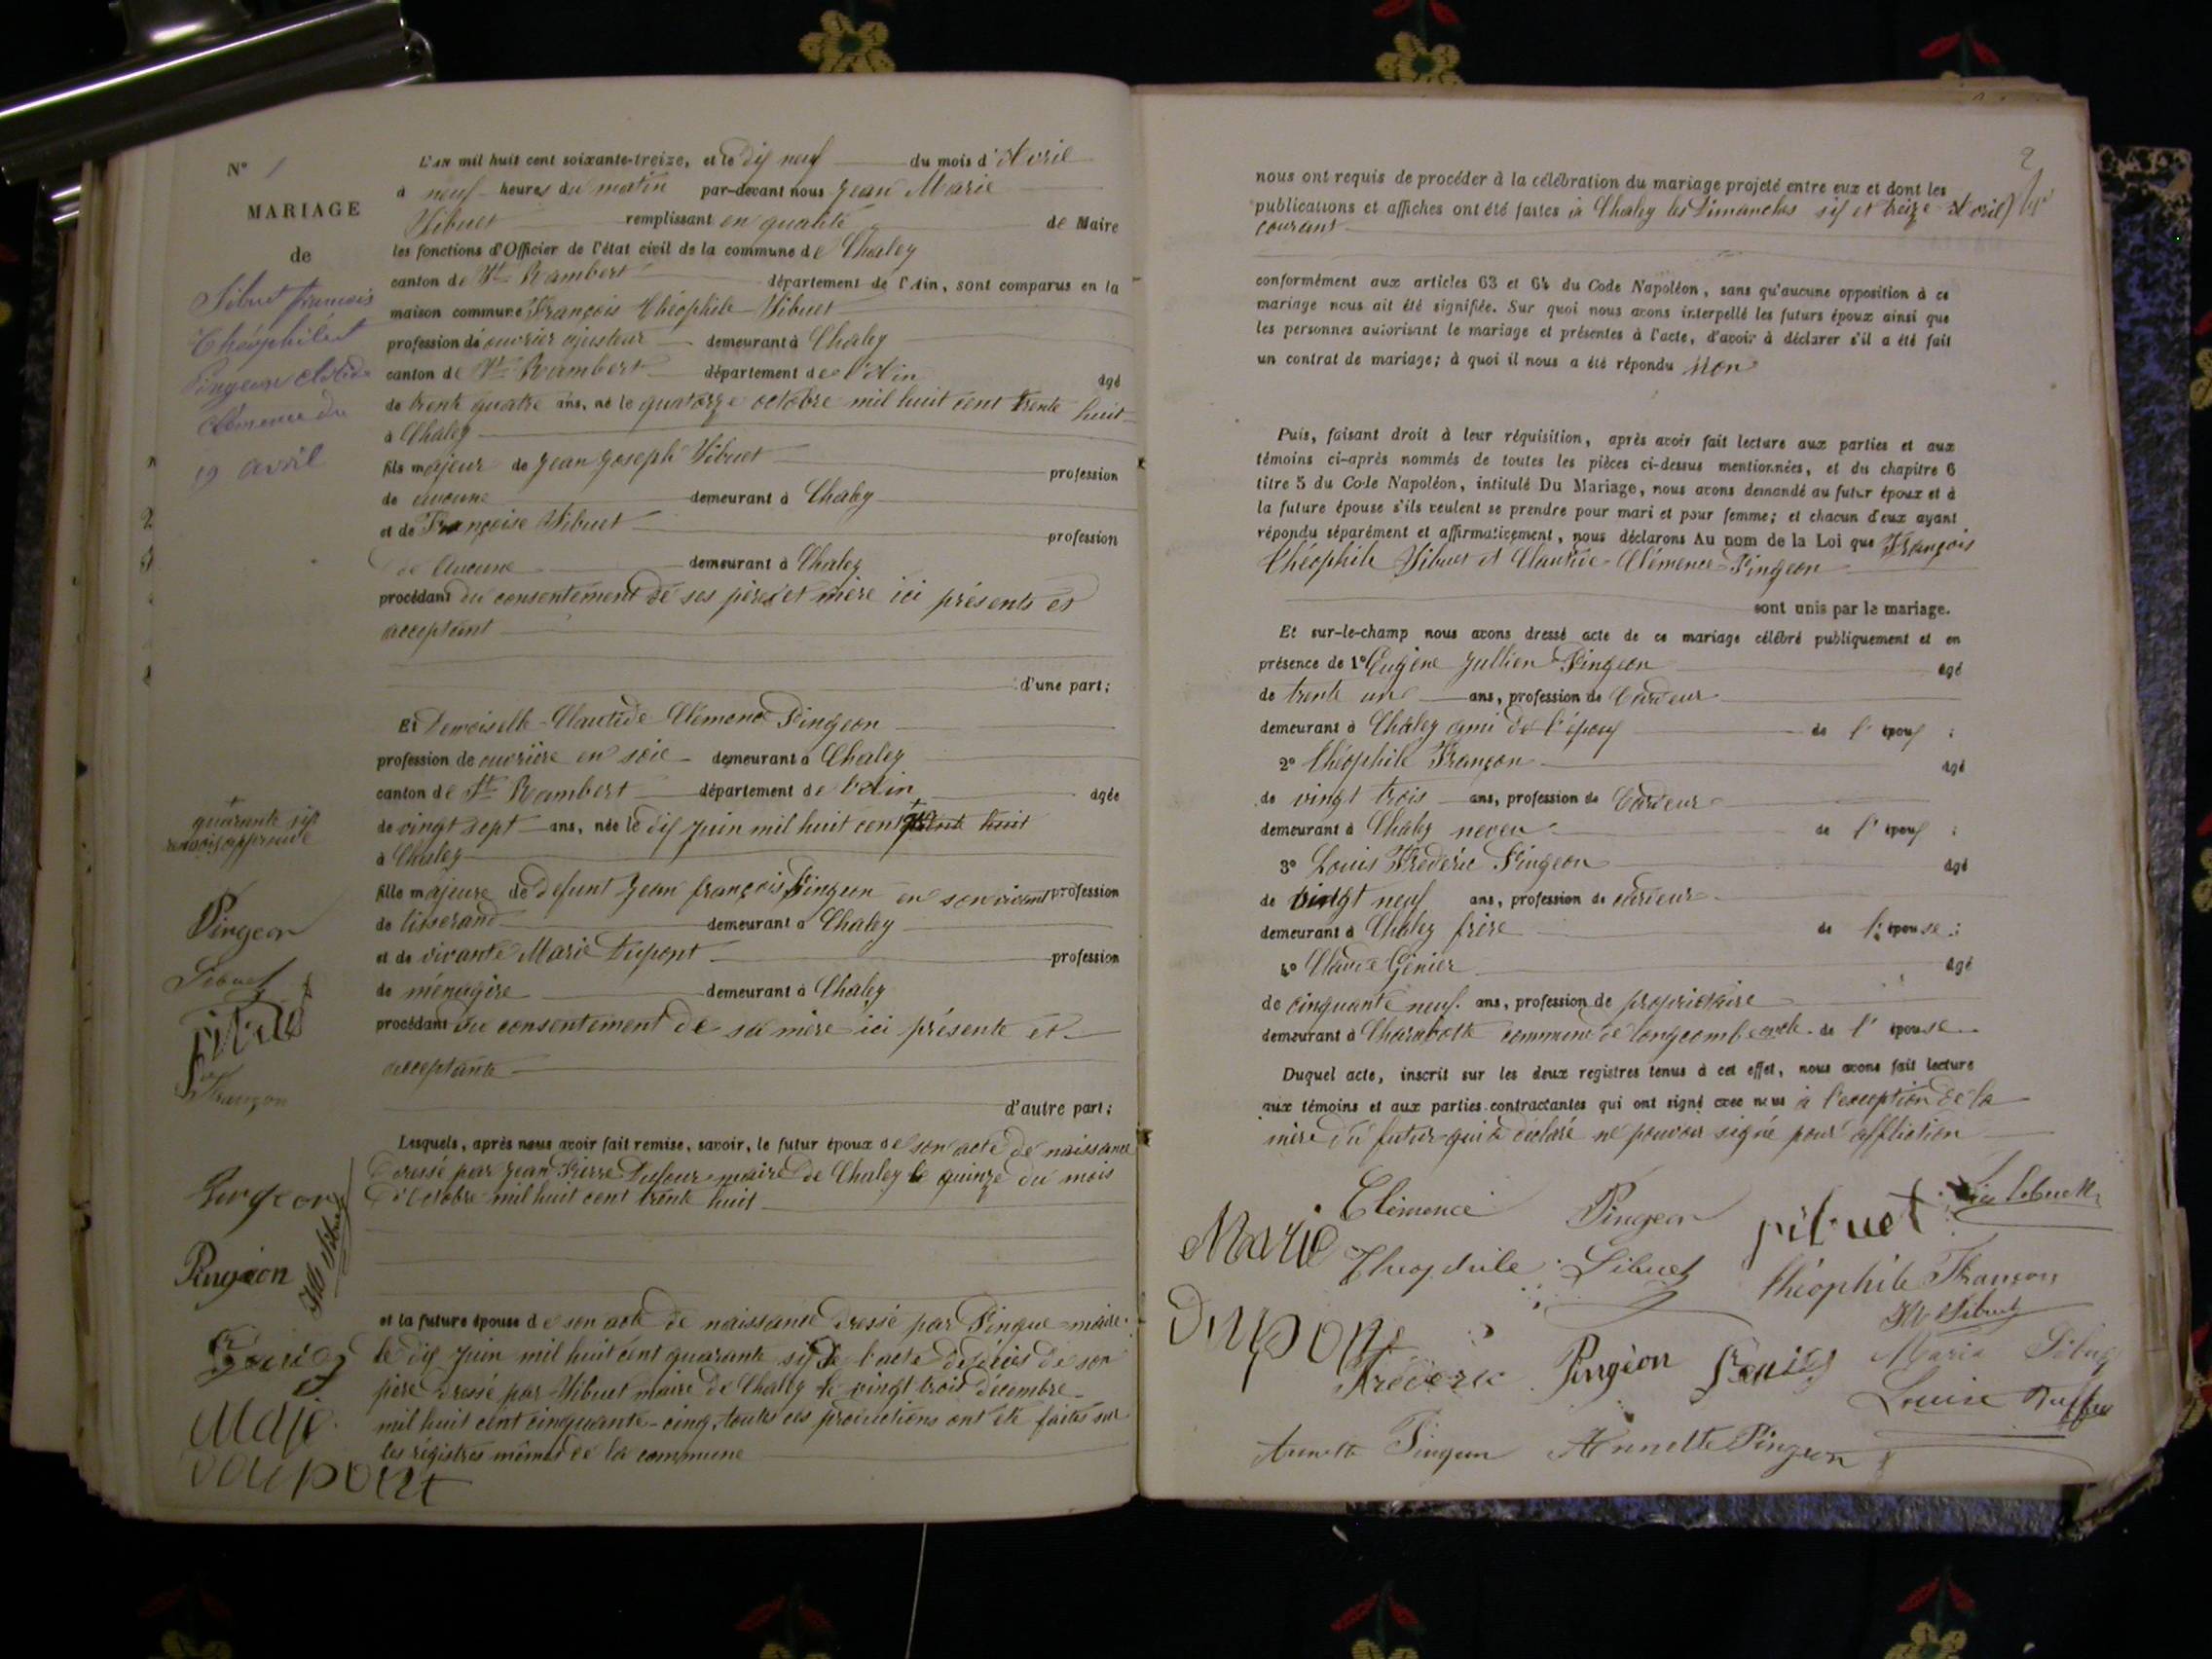 N° 1
MARIAGE
de
Sibuet François
Théophile et
Pingeon Clotide
Clémence du
19 avril
L'an mil huit cent soixante-treize, et le dix neuf du mois d'Avril
à neuf heures du matin par-devant nous Jean Marie
Sibuet remplissant en qualité de Maire
les fonctions d'Officier de l'état civil de la commune de Chaley
canton de St Rambert département de l'Ain, sont comparus en la
maison commune François Théophile Sibuet
profession de ouvrier ajusteur demeurant à Chaley
canton de St Rambert département de l'Ain âgé
de trente quatre ans, né le quatorze octobre mil huit cent trente huit
à Chaley
fils majeur de Jean Joseph Sibuet profession
de aucune demeurant à Chaley
et de Françoise Sibuet profession
de aucune demeurant à Chaley
procédant du consentement de ses père et mère ici présents et
acceptant
d'une part;
Et Demoiselle Clautide Clémence Pingeon
profession de ouvrière en soie demeurant à Chaley
canton de St Rambert département de l'Ain âgée
de vingt sept ans, née le dix Juin mil huit cent trente huit
à Chaley
quarante six
renvoi approuvé
fille majeure de defunt Jean françois Pingeon en son vivant profession
de tisserand demeurant à Chaley
et de vivante Marie Dupont profession
de ménagère demeurant à Chaley
procédant du consentement de sa mère ici présente et
acceptante
d'autre part;
Pingeon
Sibuet
Françon
Lesquels, après nous avoir fait remise, savoir, le futur époux de son acte de naissance
dressé par Jean Pierre Dufour maire de Chaley le quinze du mois
d'Octobre mil huit cent trente huit
et la future épouse de son acte de naissance dressé par Pingue maire
le dix Juin mil huit cent quarante six de l'acte de décès de son
père dressé par Sibuet maire de Chaley le vingt trois décembre
mil huit cent cinquante-cinq, toutes ces productions ont été faites sur
les régistres mêmes de la commune
Pingeon
Pingeon
2
nous ont requis de procéder à la célébration du mariage projeté entre eux et dont les
publications et affiches ont été faites à Chaley les Dimanches six et treize Avril
courant
conformément aux articles 63 et 64 du Code Napoléon, sans qu'aucune opposition à ce
mariage nous ait été signifiée. Sur quoi nous avons interpellé les futurs époux ainsi que
les personnes autorisant le mariage et présentes à l'acte, d'avoir à déclarer s'il a été fait
un contrat de mariage; à quoi il nous a été répondu Non
Puis, faisant droit à leur réquisition, après avoir fait lecture aux parties et aux
témoins ci-après nommés de toutes les pièces ci-dessus mentionnées, et du chapitre 6
titre 5 du Code Napoléon, intitulé Du Mariage, nous avons demandé au futur époux et à
la future épouse s'ils veulent se prendre pour mari et pour femme; et chacun d'eux ayant
répondu séparément et affirmativement, nous déclarons Au nom de la Loi que François
Théophile Sibuet et Clautide Clémence Pingeon
sont unis par le mariage.
Et sur-le-champ nous avons dressé acte de ce mariage célébré publiquement et en
présence de 1° Eugène Jullien Pingeon âgé
de trente un ans, profession de Cardeur
demeurant à Chaley ami de l'époux de l'époux ;
2° Théophile Françon âgé
de vingt trois ans, profession de Cardeur
demeurant à Chaley neveu de l'époux ;
3° Louis Fréderic Pingeon âgé
de vingt neuf ans, profession de cardeur
demeurant à Chaley frère de l'épouse ;
4° Claude Génier âgé
de cinquante neuf ans, profession de propriétaire
demeurant à Charabotte commune de Longcombe oncle de l'épouse
Duquel acte, inscrit sur les deux registres tenus à cet effet, nous avons fait lecture
aux témoins et aux parties contractantes qui ont signé avec nous à l'exception de la
mère du futur qui a déclaré ne pouvoir signé pour affliction
Clémence Pingeon sibuet
Marie Théophile Sibuet Théophile Françon
Dupont JM Sibuet
Fréderic Pingeon Marie Sibuet
Louise
Annette Pingeon Annette Pingeon